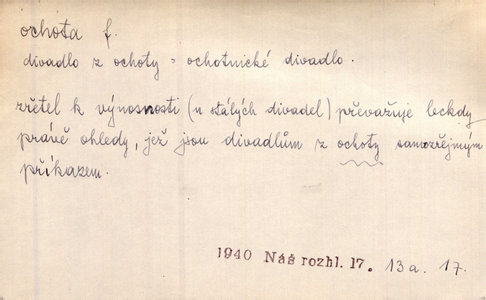 ochota f.
divadlo z ochoty = ochotnické divadlo.
zřetel k výnosnosti (u stálých divadel) převažuje leckdy
právě ohledy, jež jsou divadlům z ochoty samozřejmým
příkazem.
1940 Náš rozhl. 17. 13 a. 17.